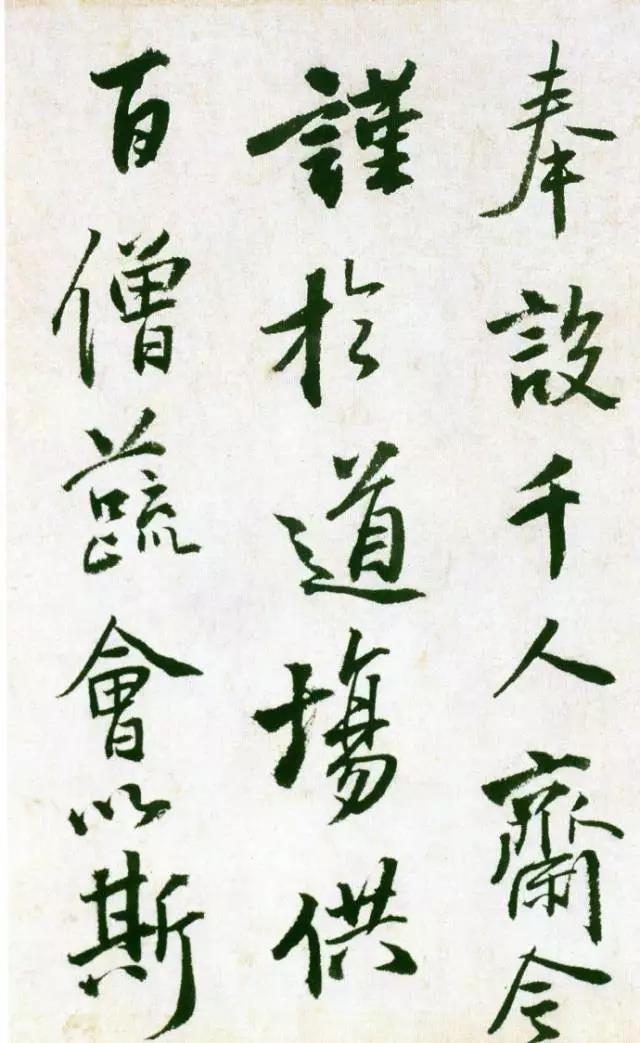 奉設千人齋令
謹於道場供
百僧蔬會以斯